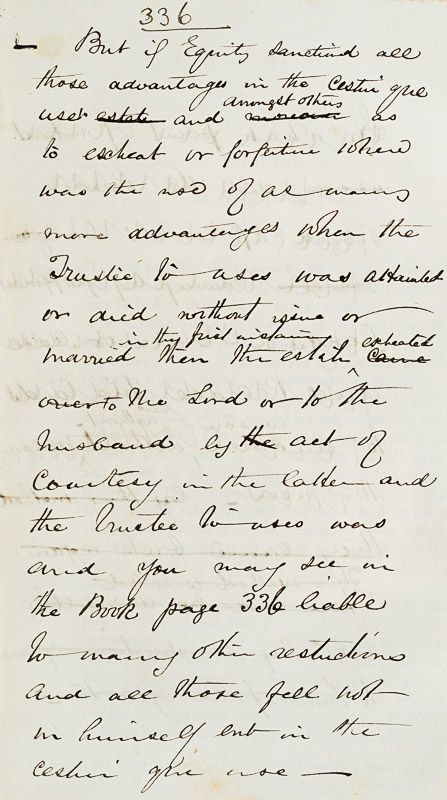 336
But if Equity sanctiond all
those advantages in the Cestui que
use estate and amongst others as
to escheat or forfeiture there
was the use of as many
more advantages when the
Trustee to uses was attainted
or died without issue or
in the first instance escheated
married then the estate came
over to the Lord or to the
husband by the act of
Courtesy in the latter and
the Trustee to uses was
and you may see in
the Book page 336 liable
to many other restrictions
and all those fell not
in himself but in the
cestui que use —